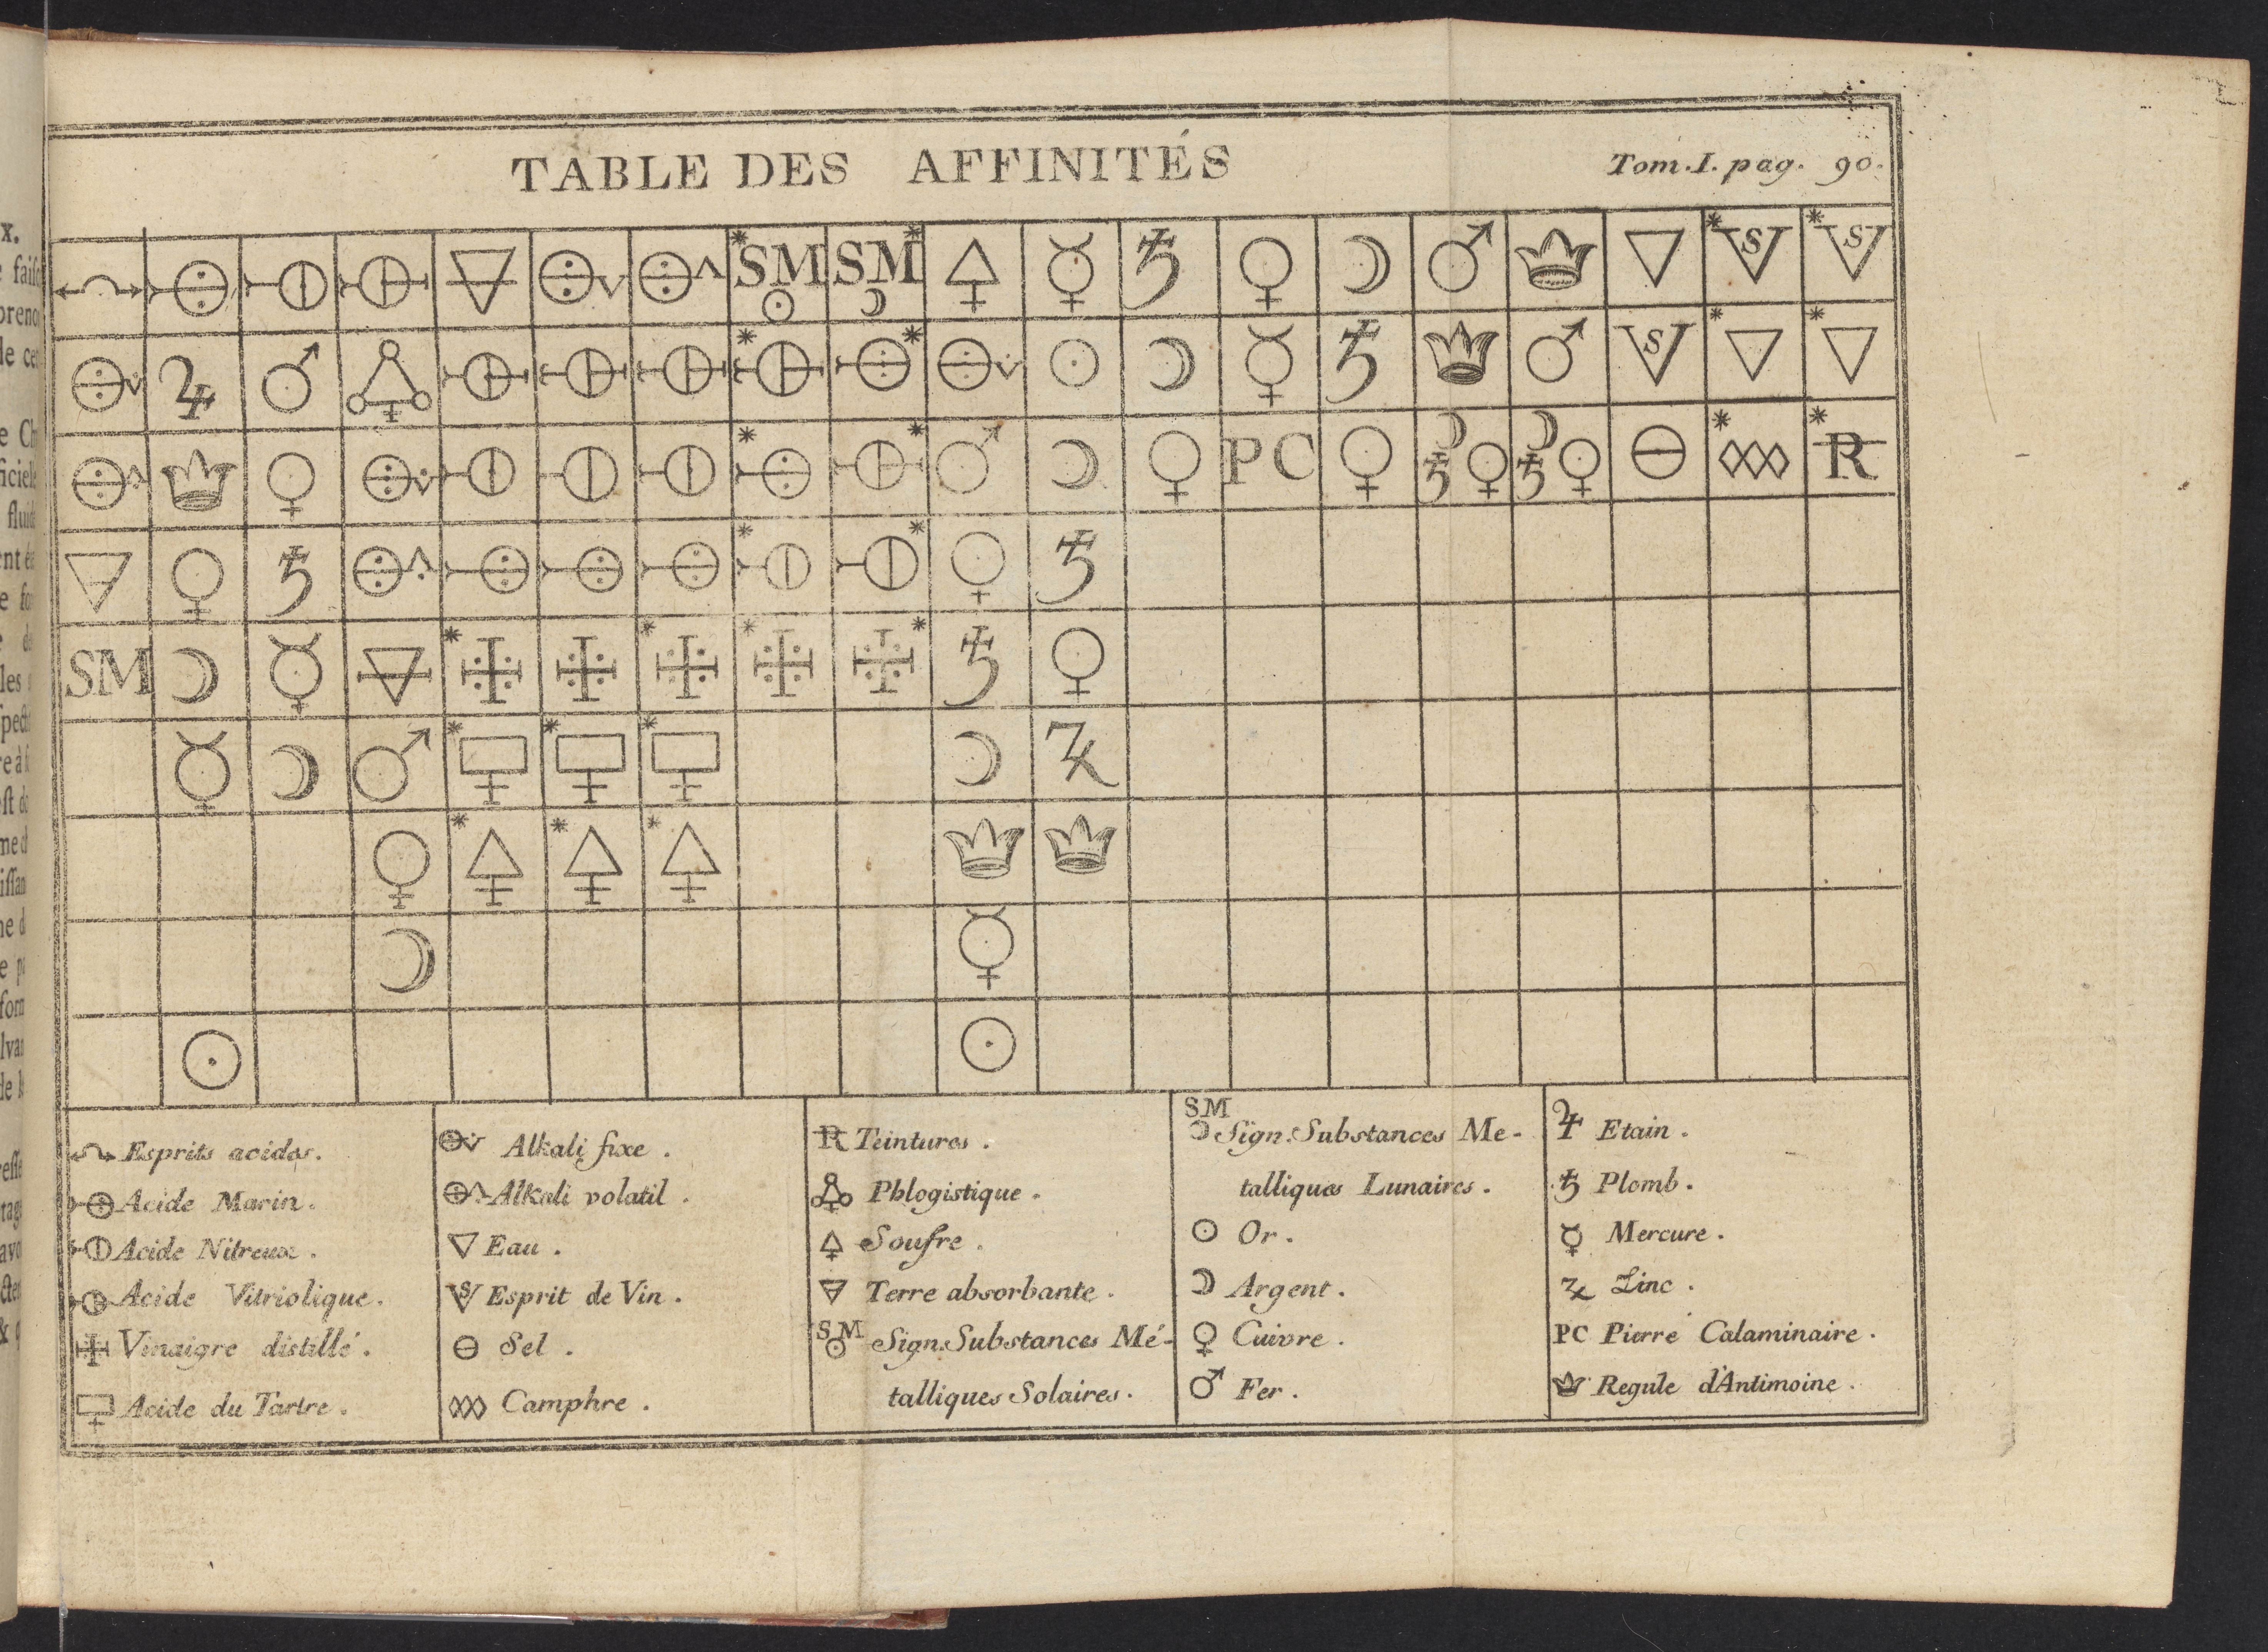 TABLE DES AFFINITÉS
Tom. I. pag. 90.
SM SM
S S
S
PC
R
SM
Esprits acides.
Acide Marin.
Acide Nitreux.
Acide Vitriolique.
Vinaigre distillé.
Acide du Tartre.
Alkali fixe.
Alkali volatil.
Eau.
Esprit de Vin.
Sel.
Camphre.
R Teintures.
Phlogistique.
Soufre.
Terre absorbante.
SM Sign. Substances Mé-
talliques Solaires.
SM
Sign. Substances Me-
talliques Lunaires.
Or.
Argent.
Cuivre.
Fer.
Etain.
Plomb.
Mercure.
Zinc.
PC Pierre Calaminaire.
Regule d'Antimoine.